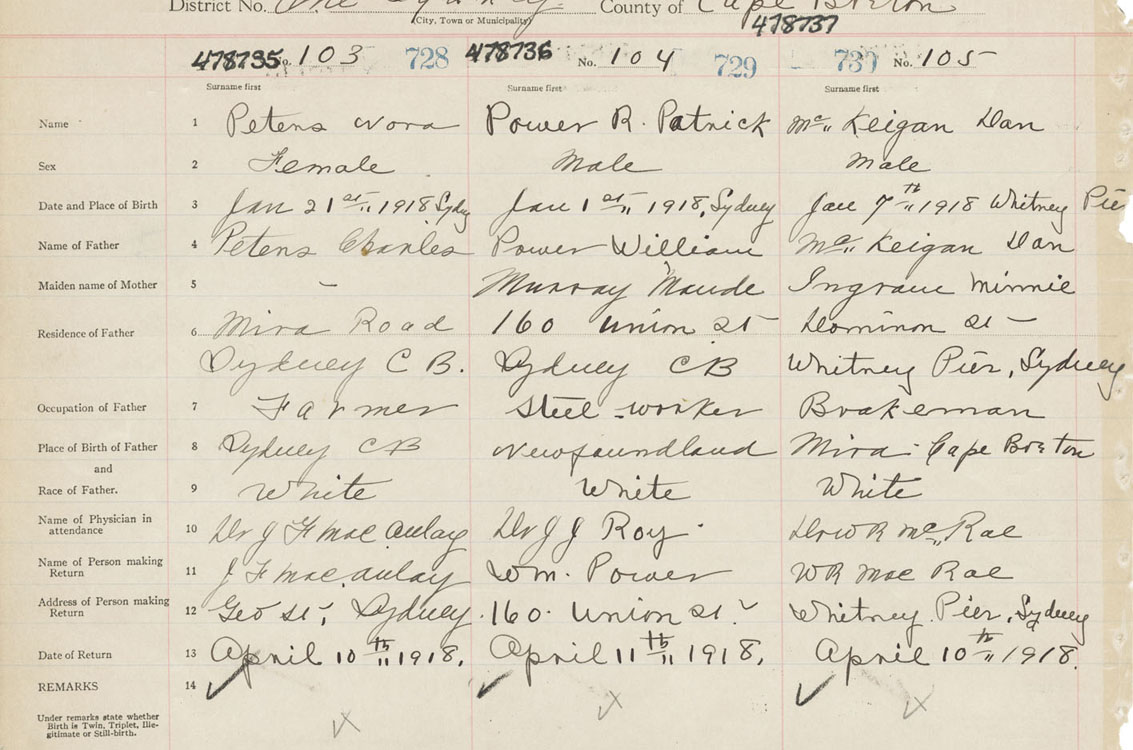 District No. One Sydney. County of Cape Breton
(City, Town or Municipality)
478737
478735 No. 103 728 478736 No. 104 729 730 No. 105
Surname first Surname first Surname first
Name 1 Peters Nora Power R. Patrick Mc" Keigan Dan
Sex 2 Female Male Male
Date and Place of Birth 3 Jan 21st" 1918 Sydny Jan 1st" 1918, Sydney Jan 7th" 1918 Whitney Pie
Name of Father 4 Peters Charles Power William Mc" Keigan Dan
Maiden name of Mother 5 - Murray Maude Ingram Minnie
Residence of Father 6 Mira Road 160 Union St Dominon St -
Sydney C B. Sydney CB Whitney Pier, Sydney
Occupation of Father 7 Farmer Steel-worker Brakeman
Place of Birth of Father 8 Sydney CB Newfoundland Mira - Cape Breton
and
Race of Father. 9 White White White
Name of Physician in attendance 10 Dr J F Mac Aulay Dr J J Roy Dr W R Mc" Rae
Name of Person making Return 11 J F Mac Aulay Wm. Power WR Mac Rae
Address of Person making Return 12 Geo St, Sydney. 160 Union St. Whitney Pier, Sydney
Date of Return 13 April 10th" 1918. April 11th" 1918. April 10th" 1918.
REMARKS 14
Under remarks state whether
Birth is Twin, Triplet, Ille-
gitimate or Still-birth.